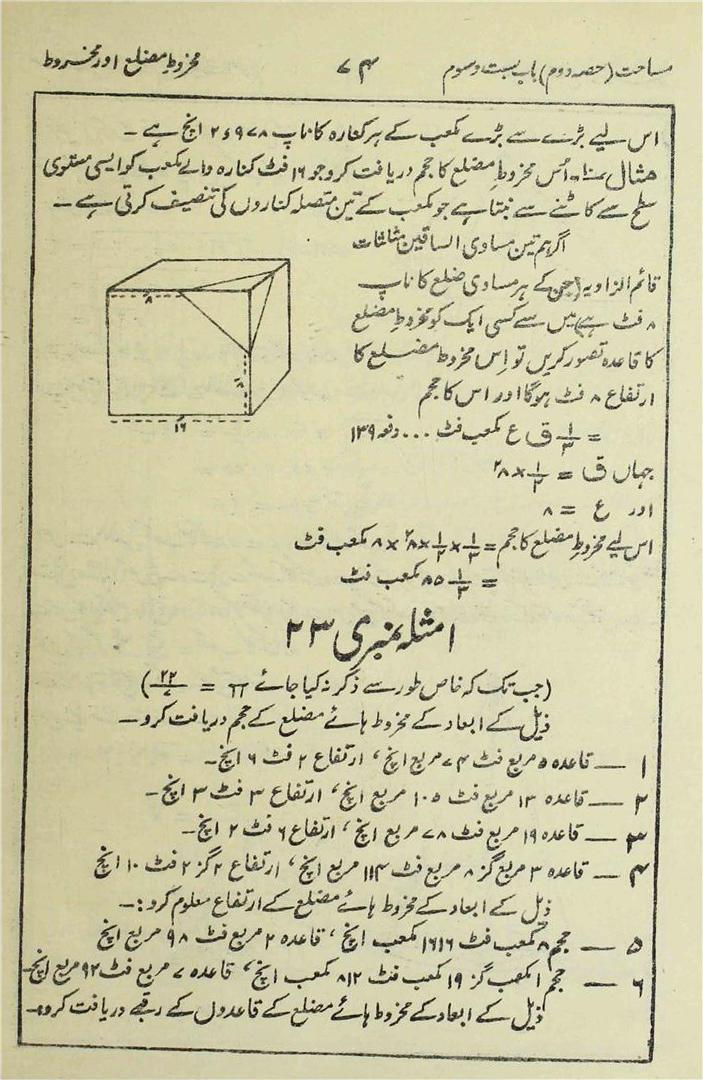 مساحت (حصہ دوم) باب بست و سوم
۷۴
مخروط مضلع اور مخروط
اس لیے بڑے سے بڑے مکعب کے ہر کنارہ کا ناپ ۲٫۹۷۸ انچ ہے ۔
مثال ۔ اُس مخروطِ مضلع کا حجم دریافت کرو جو ۱۶ فٹ کنارہ والے مکعب کو ایسی مستوی
سطح سے کاٹنے سے بنتا ہے جو مکعب کے تین متصلہ کناروں کی تنصیف کرتی ہے ۔
اگر ہم تین مساوی الساقین مثلثات
قائم الزاویہ (جن کے ہر مساوی ضلع کا ناپ
۸ فٹ ہے) میں سے کسی ایک کو مخروطِ مضلع
کا قاعدہ تصور کریں تو اِس مخروط مضلع کا
ارتفاع ۸ فٹ ہوگا اور اس کا حجم
= ۱/۳ ق ع مکعب فٹ ... دفعہ ۱۳۹
جہاں ق = ۱/۲ × ۸²
اور ع = ۸
اس لیے مخروطِ مضلع کا حجم = ۱/۳ × ۱/۲ × ۸² × ۸ مکعب فٹ
= ۸۵ ۱/۳ مکعب فٹ
۸
۸
۱۶
امثلہ نمبری ۲۳
(جب تک کہ خاص طور سے ذکر نہ کیا جائے π = ۲۲/۷)
ذیل کے ابعاد کے مخروط ہائے مضلع کے حجم دریافت کرو ۔
۱ — قاعدہ ۵ مربع فٹ ۷۴ مربع انچ، ارتفاع ۲ فٹ ۶ انچ ۔
۲ — قاعدہ ۱۳ مربع فٹ ۱۰۵ مربع انچ، ارتفاع ۳ فٹ ۳ انچ ۔
۳ — قاعدہ ۱۹ مربع فٹ ۷۸ مربع انچ، ارتفاع ۶ فٹ ۲ انچ ۔
۴ — قاعدہ ۳ مربع گز ۸ مربع فٹ ۱۱۴ مربع انچ، ارتفاع ۲ گز ۲ فٹ ۱۰ انچ
ذیل کے ابعاد کے مخروط ہائے مضلع کے ارتفاع معلوم کرو :-
۵ — حجم ۸ مکعب فٹ ۱۶۱۶ مکعب انچ، قاعدہ ۲ مربع فٹ ۹۸ مربع انچ
۶ — حجم ۱ مکعب گز ۱۹ مکعب فٹ ۸۱۲ مکعب انچ، قاعدہ ۷ مربع فٹ ۹۲ مربع انچ ۔
ذیل کے ابعاد کے مخروط ہائے مضلع کے قاعدوں کے رقبے دریافت کرو :-